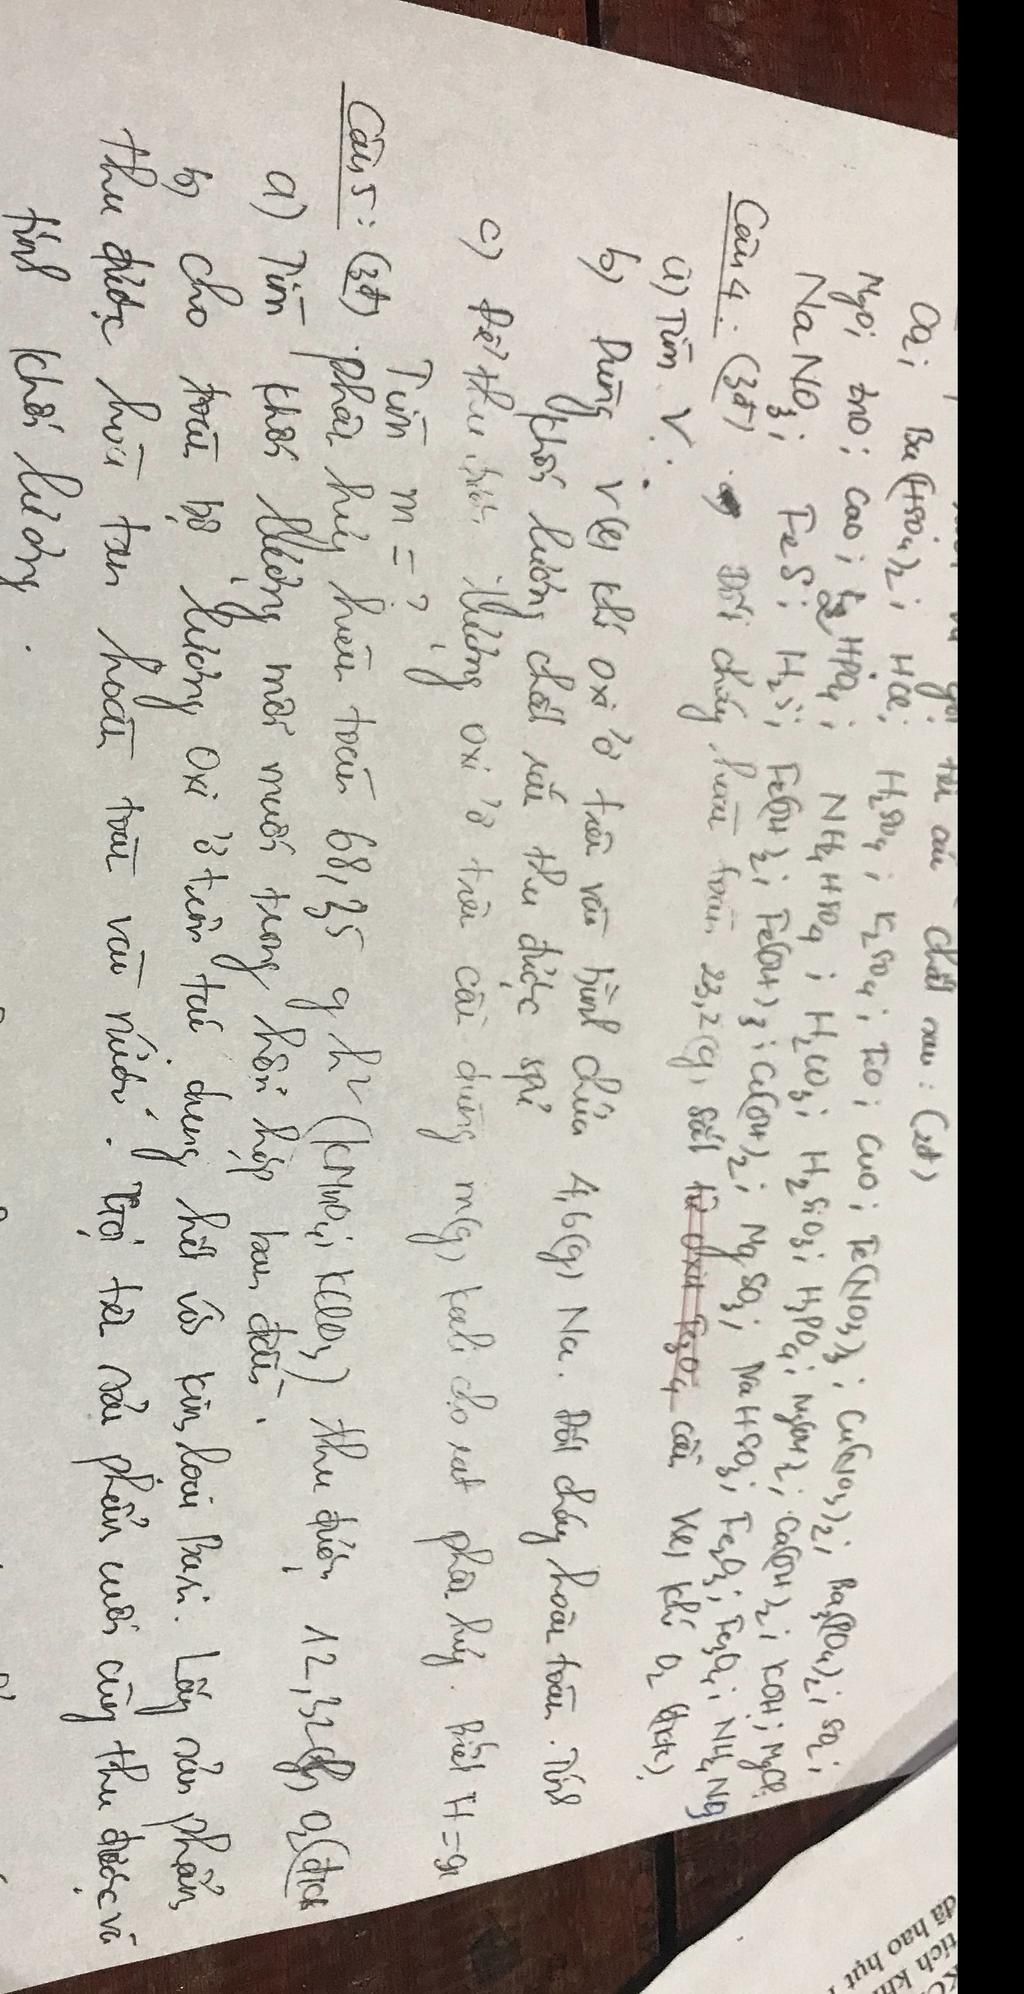 chất sau: (2đ)
O2; Ba(HSO4)2; HCl; H2SO4; K2SO4; FeO; CuO; Fe(NO3)3; Cu(NO3)2; Ba3(PO4)2; SO2;
MgO; ZnO; CaO; K2HPO4; NH4HSO4; H2CO3; H2SiO3; H3PO4; Mg(OH)2; Ca(OH)2; KOH; MgCl2
NaNO3; FeS; H2S; Fe(OH)2; Fe(OH)3; Cu(OH)2; MgSO3; NaHSO3; Fe2O3; Fe3O4; NH4NO3
Câu 4: (3đ). Đốt cháy hoàn toàn 23,2(g) sắt từ oxit Fe3O4 cần V(l) khí O2 (đktc).
a) Tìm V.
b) Dùng V(l) khí oxi ở trên vào bình chứa 4,6(g) Na. Đốt cháy hoàn toàn. Tính
khối lượng chất rắn thu được sau pứ
c) Để thu được lượng oxi ở trên cần dùng m(g) kali clo rat phân hủy. Biết H=
Tìm m = ?
Câu 5: (3đ). phân hủy hoàn toàn 68,35 g h2 (KMnO4; KClO3) thu được 12,32(l) O2 (đktc
a) Tìm khối lượng mỗi muối trong hỗn hợp ban đầu.
b) cho toàn bộ lượng oxi ở trên tác dụng hết với kim loại Bari. Lấy sản phẩm
thu được hòa tan hoàn toàn vào nước. Gọi tên sản phẩm cuối cùng thu được và
tính khối lượng.
đã hao hụt
tích khí